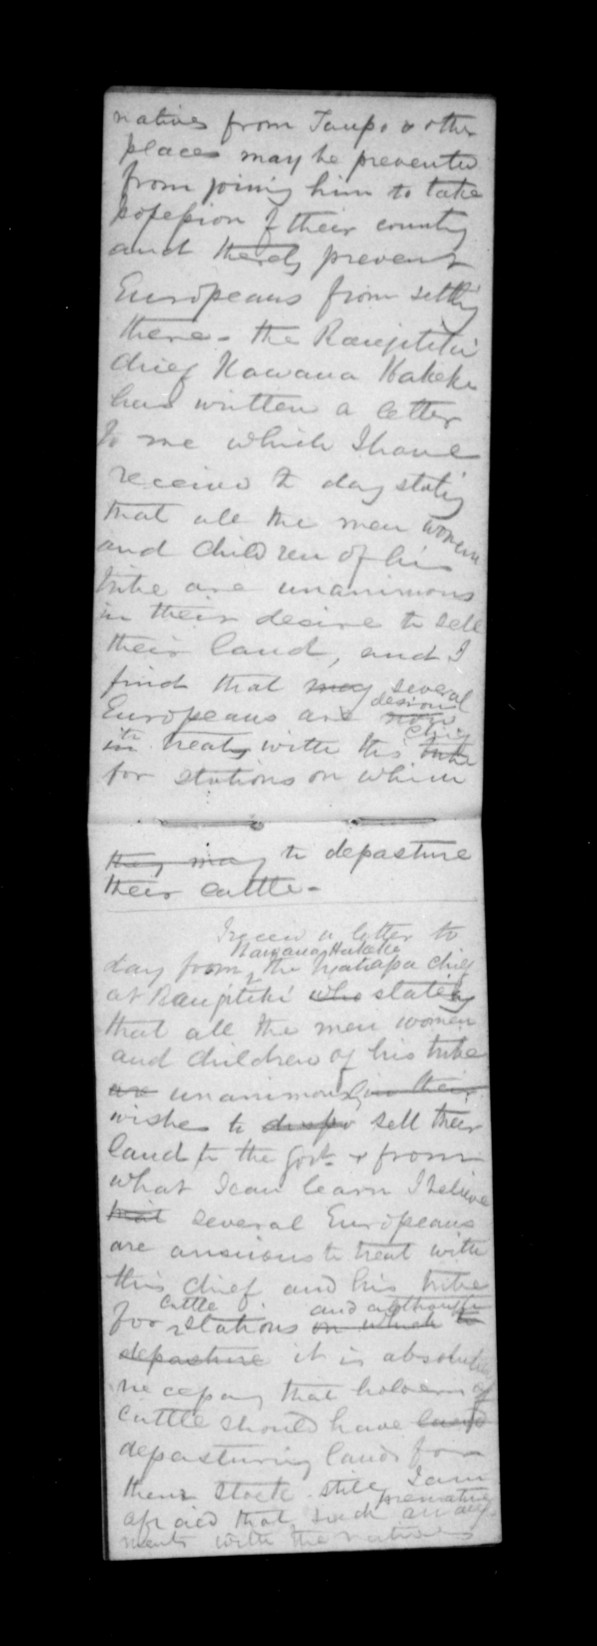 natives from Taupo & other
places may be prevented
from joining him to take
possession of their country
and thereby prevent
Europeans from settling
there - the Rangitiki
chief Kawana Hakeke
has written a letter
to me which I have
received to day stating
that all the men women
and children of his
tribe are unanimous
in their desire to sell
their land, and I
find that may several
desirous
Europeans are now
to chief
in treaty with this tribe
for stations on which
they may to depasture
their cattle -
I receiv a letter to
Kawana Hakeke
day from the Ngatiapa chief
at Rangitiki who stating
that all the men women
and children of his tribe
are unanimously in their
wishes to dispo sell their
land to the Govt & from
what I can learn I believe
that several Europeans
are anxious to treat with
this chief and his tribe
cattle and although
for stations on which to
depasture it is absolutely
necessary that holders of
cattle should have land
depasturing lands for
their stock still I am
premature
afraid that such
ments with the natives